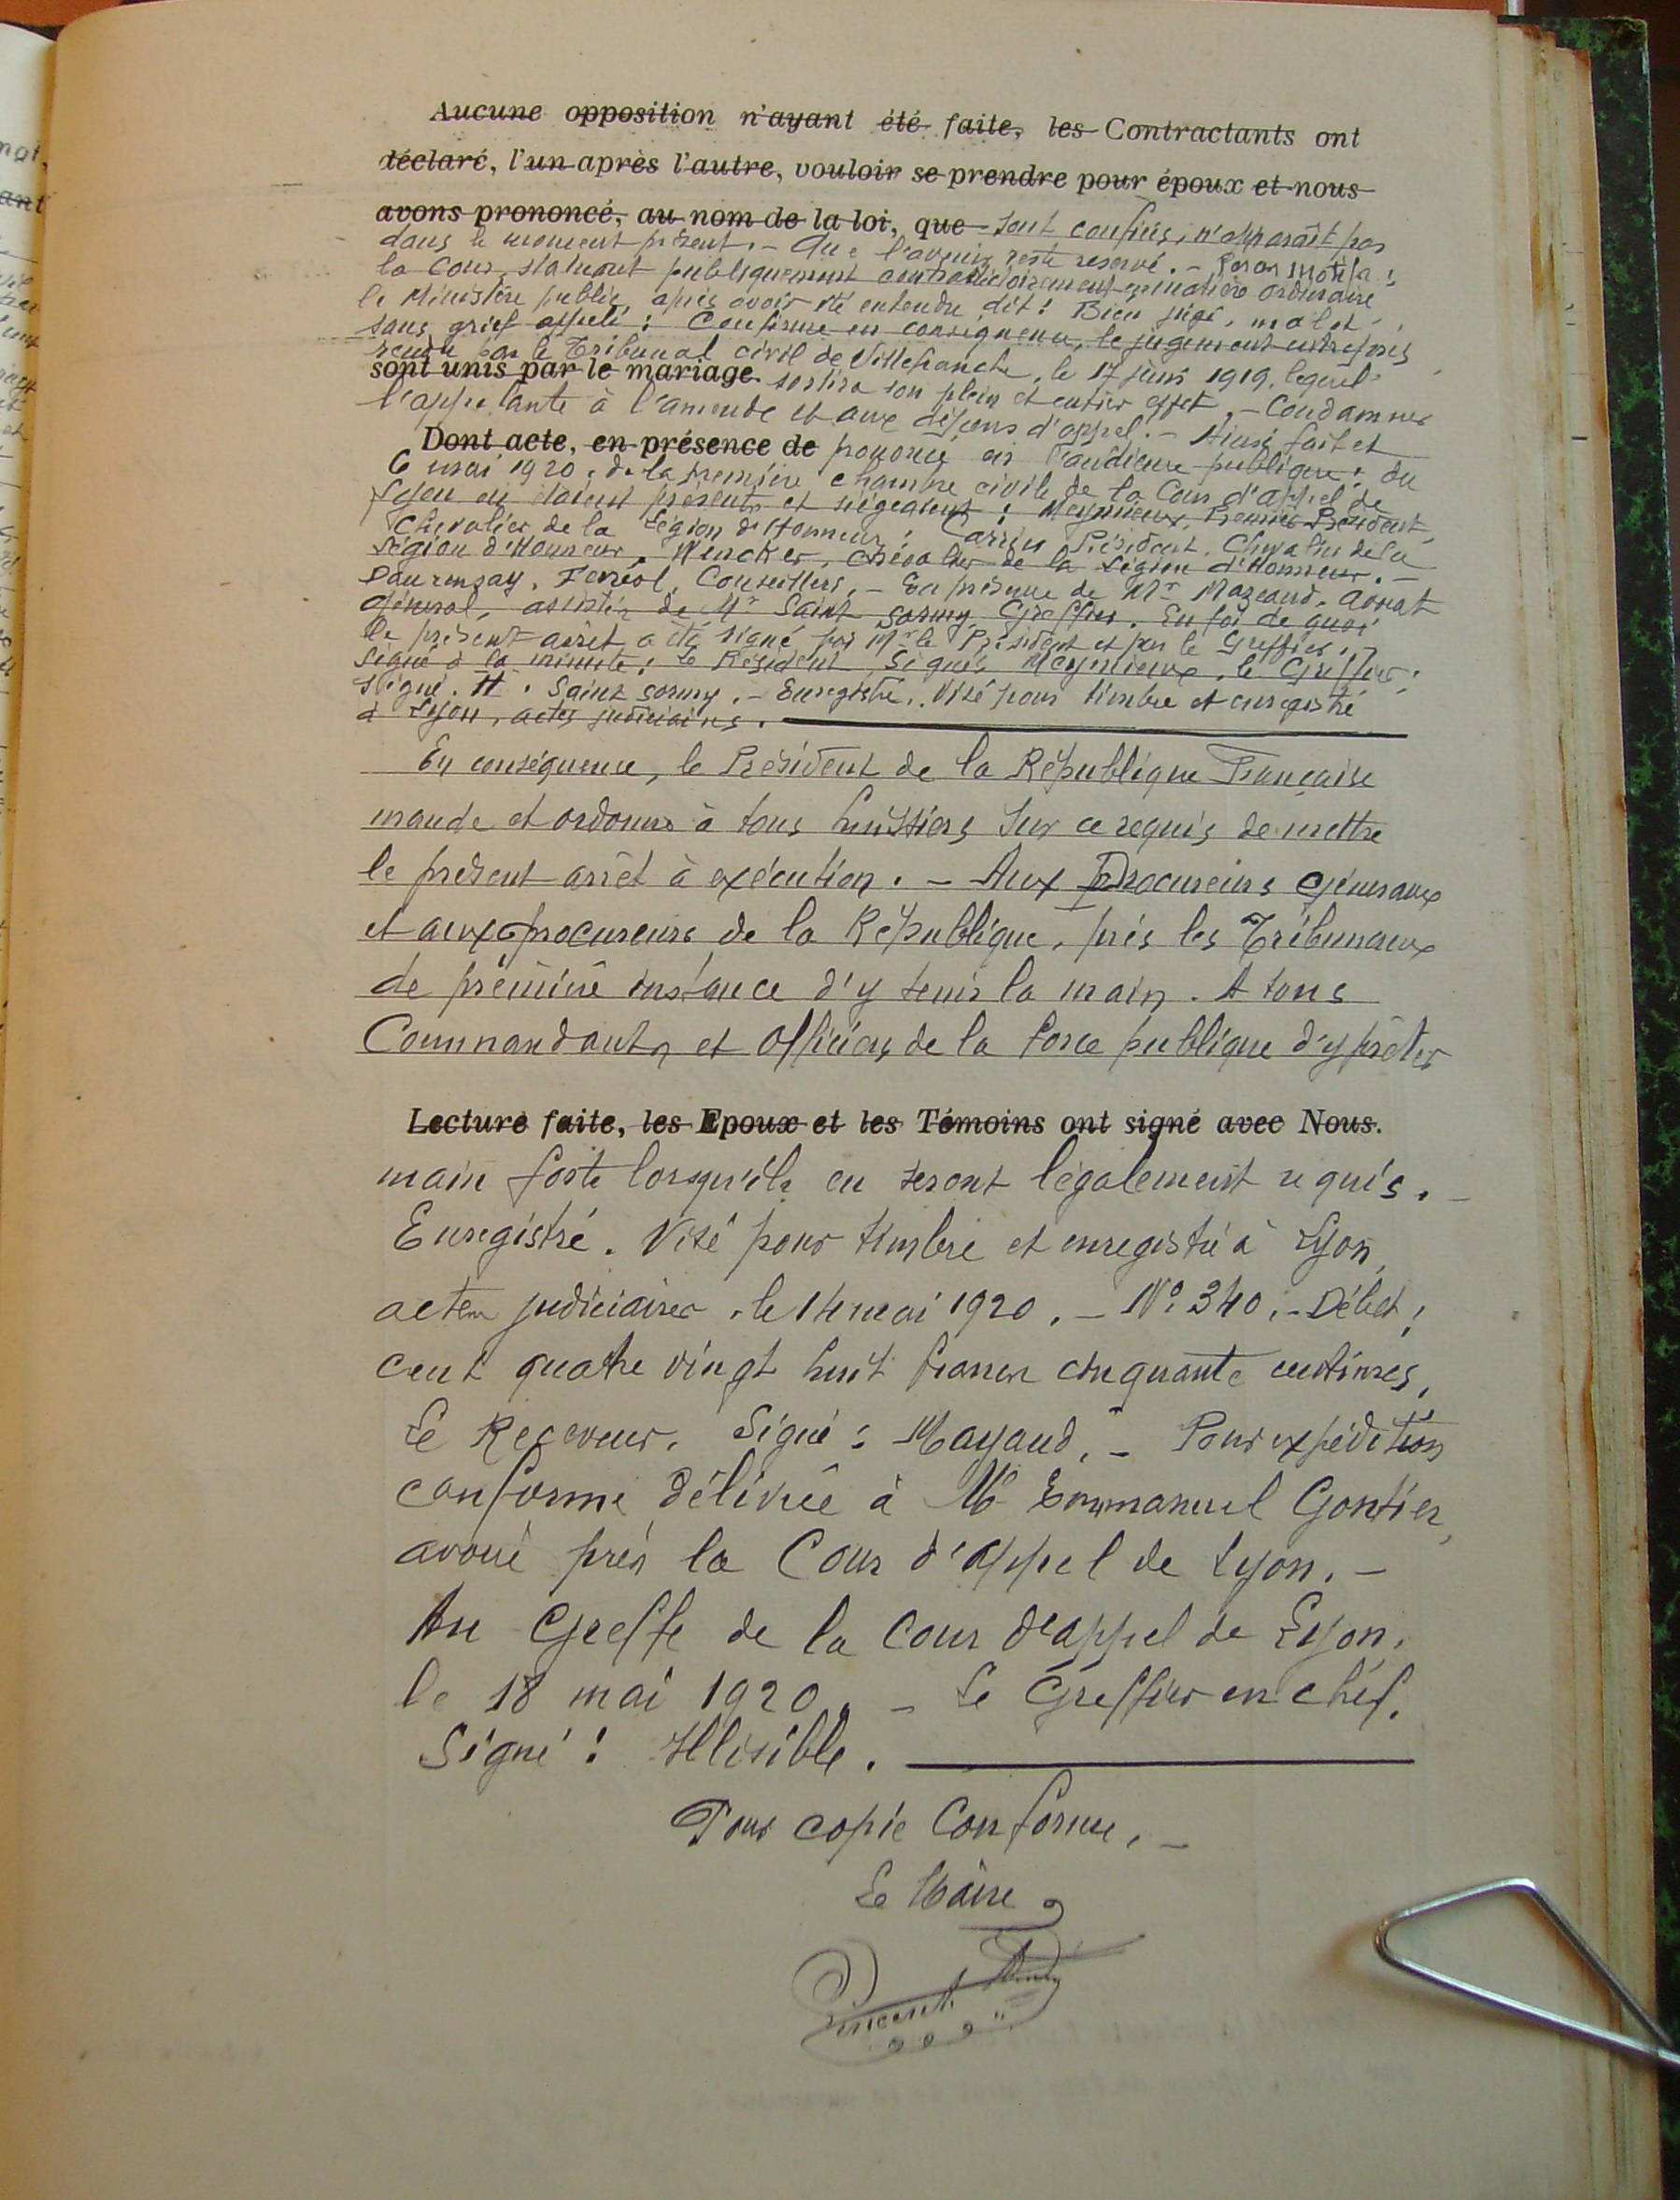 Aucune opposition n'ayant été faite, les Contractants ont
déclaré, l'un après l'autre, vouloir se prendre pour époux et nous
avons prononcé, au nom de la loi, que sont confiés, n'apparaît pas
dans le moment présent. - Que l'avenir reste reservé. - Par ces motifs :
la Cour, statuant publiquement contradictoirement en matière ordinaire
le Ministère public, après avoir été entendu, dit : Bien jugé, mal et
sans grief appelé : Confirme en conséquence, le jugement entrepris
rendu par le Tribunal civil de Villefranche, le 17 juin 1919, lequel
sont unis par le mariage. sortira son plein et entier effet. - Condamne
l'appelante à l'amende et aux dépens d'appel. - Ainsi fait et
Dont acte, en présence de prononcé en l'audience publique : du
6 mai 1920, de la première chambre civile de la Cour d'appel de
Lyon où étaient présents et siégeaient : Meynieux, Premier Président,
Chevalier de la Légion d'Honneur, Président, Chevalier de la
Légion d'Honneur, Wencker, Chevalier de la Légion d'Honneur. -
Ferréol, Conseillers. - En présence de Mr Mazeaud, avocat
Général, assistés de Mr Saint Greffier. En foi de quoi
le présent arrêt a été signé par Mr le Président et par le Greffier. -
Signé à la minute : Le Président, Signé : Meynieux, le Greffier :
signé. H. Saint - Enregistré. Visé pour timbre et enregistré
à Lyon, actes judiciaires.
En conséquence, le Président de la République Française
mande et ordonne à tous huissiers sur ce requis de mettre
le présent arrêt à exécution. - Aux Procureurs Généraux
et aux procureurs de la République, près les Tribunaux
de première instance d'y tenir la main. A tous
Commandants et Officiers de la force publique d'y prêter
Lecture faite, les Epoux et les Témoins ont signé avec Nous.
main forte lorsqu'ils en seront légalement requis. -
Enregistré. Visé pour timbre et enregistré à Lyon,
actes judiciaires, le 14 mai 1920. - No 340. - Débet :
cent quatre vingt huit francs cinquante centimes,
Le Receveur. Signé : Mayaud. - Pour expédition
conforme délivrée à Me Emmanuel Gontier,
avoué près la Cour d'appel de Lyon. -
Au Greffe de la Cour d'appel de Lyon,
le 18 mai 1920. - Le Greffier en chef.
Signé : Illisible.
Pour copie Conforme, -
Le Maire
Vincent